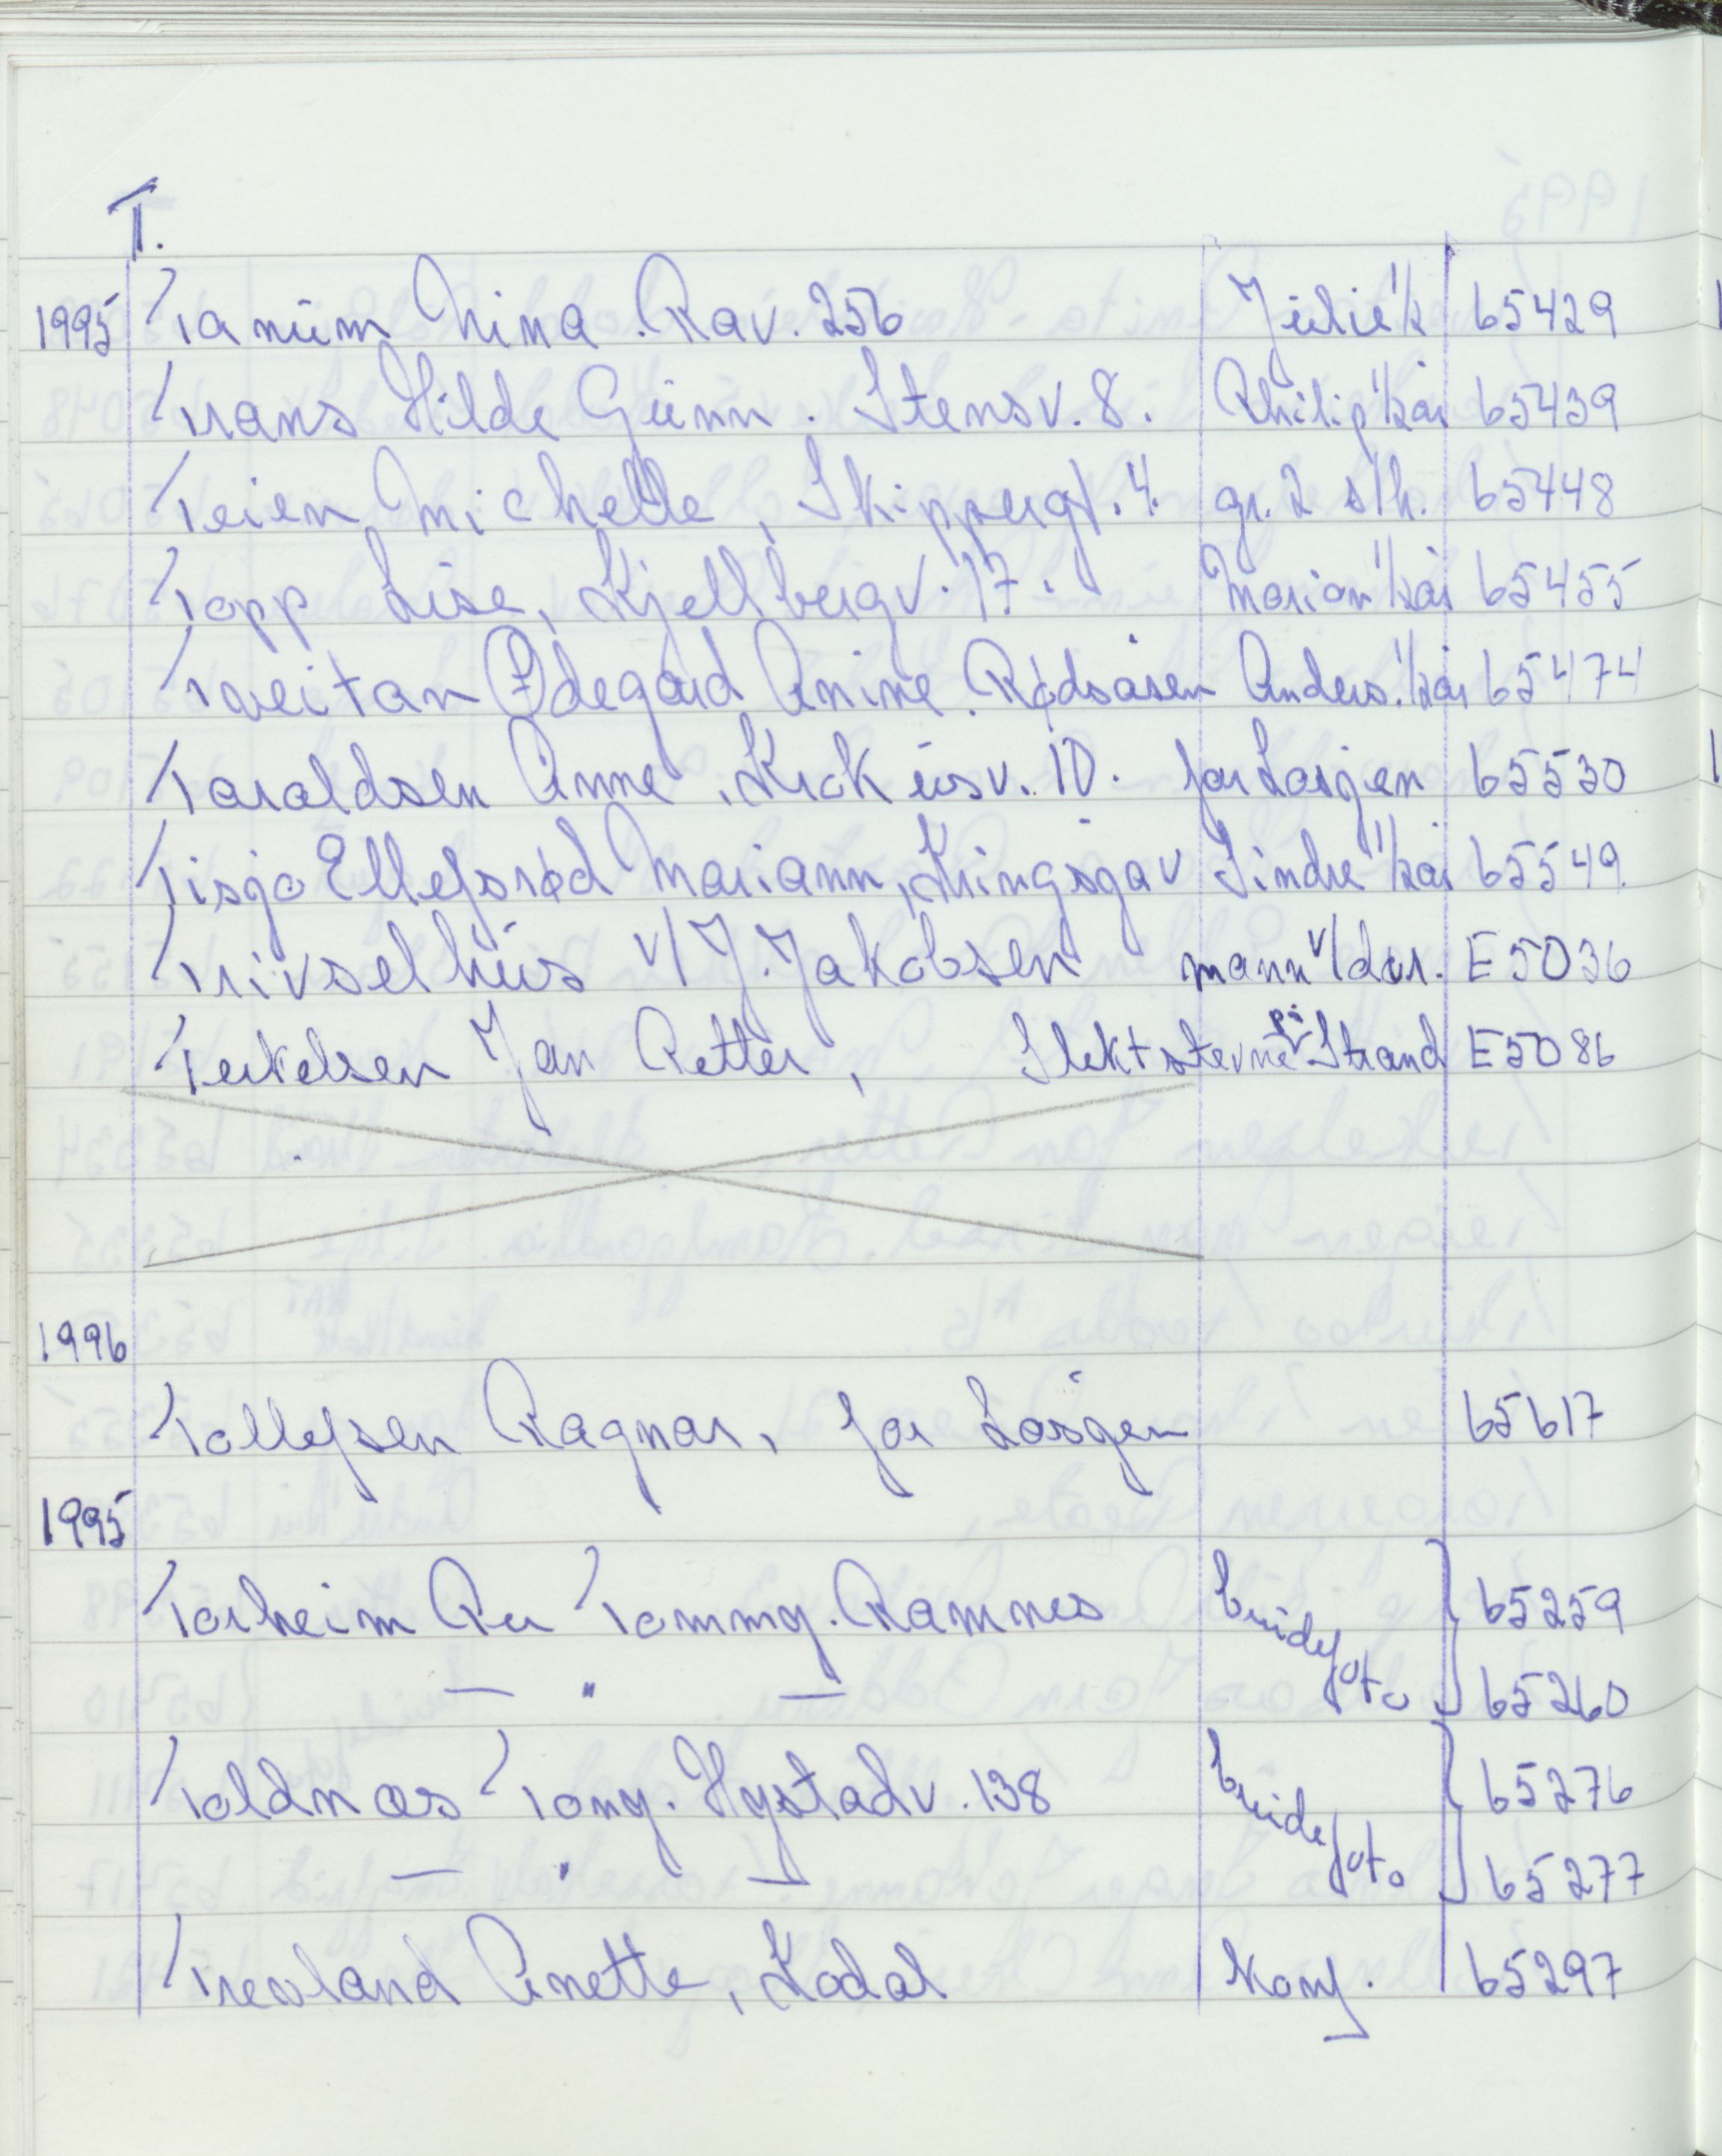 T.
1995 Tanum Nina. Rav. 256 Julie 1/k 65429
Trans Hilde Gunn. Stensv. 8. Philip 1/kar 65439
Teien Michelle, Skippergt. 4. gr. 2 s/h. 65448
Topp Lise, Kjellbergv. 17. Marion 1/kar 65455
Tveitan Ødegård Anine. Rødsåsen Anders. 1/kar 65474
Taraldsen Anne. Krokusv. 10. for Lorgen 65530
Tisjø Ellefsrød Mariann, Kringsgav Sindre 1/kar 65549.
Trivselhus v/ J. Jakobsen mann v/dør. E5036
Terkelsen Jan Petter, Slektstevne på Strand E5086
1996
Tollefsen Ragnar, for Lorgen 65617
1995
Torheim Per Tommy. Ramnes brudefoto 65259
— " — 65260
Toldnæs Tony. Hystadv. 138 brudefoto 65276
— " — 65277
Trevland Anette, Kodal Konf. 65297